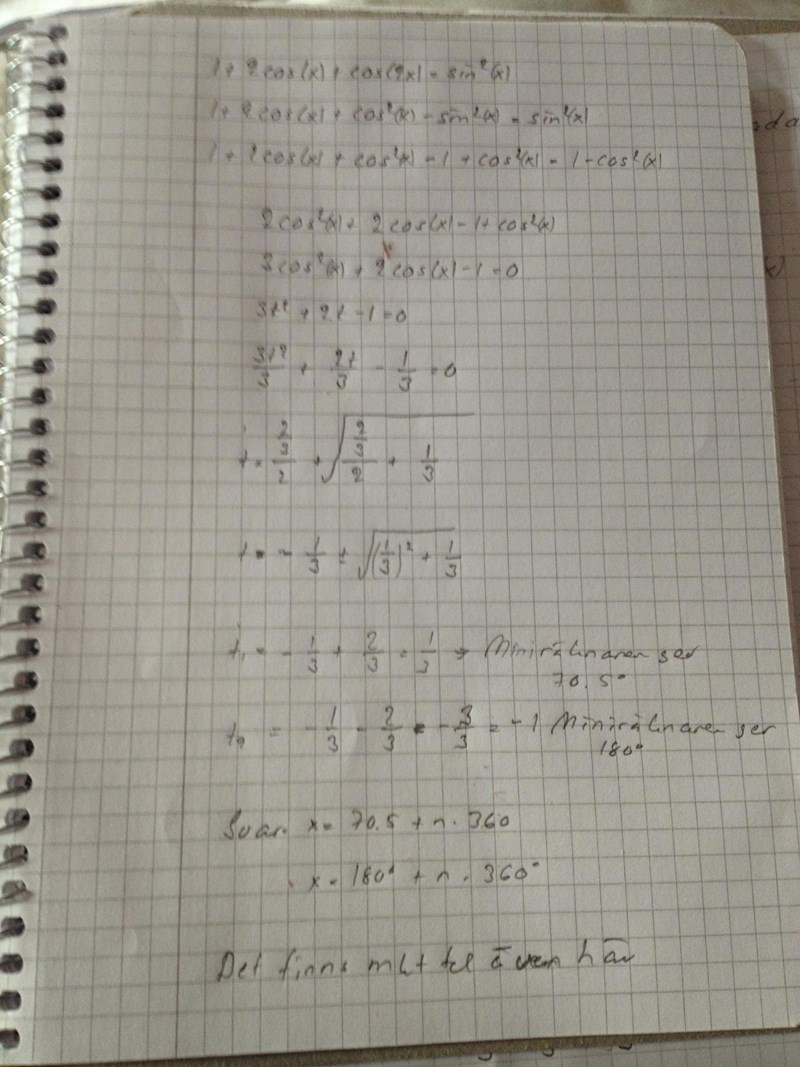 1 + 2cos(x) + cos(2x) = sin²(x)
1 + 2cos(x) + cos²(x) - sin²(x) = sin²(x)
1 + 2cos(x) + cos²(x) - 1 + cos²(x) = 1 - cos²(x)
2cos²(x) + 2cos(x) - 1 + cos²(x)
3cos²(x) + 2cos(x) - 1 = 0
3t² + 2t - 1 = 0
3t²/3 + 2t/3 - 1/3 = 0
t = (2/3)/2 + √((2/3)/2 + 1/3)
t = - 1/3 ± √((1/3)² + 1/3)
t₁ = - 1/3 + 2/3 = 1/3 → Miniräknaren ger
70.5°
t₂ = - 1/3 - 2/3 = - 3/3 = -1 Miniräknaren ger
180°
Svar x = 70.5 + n · 360
x = 180° + n · 360°
Det finns mkt fel även här